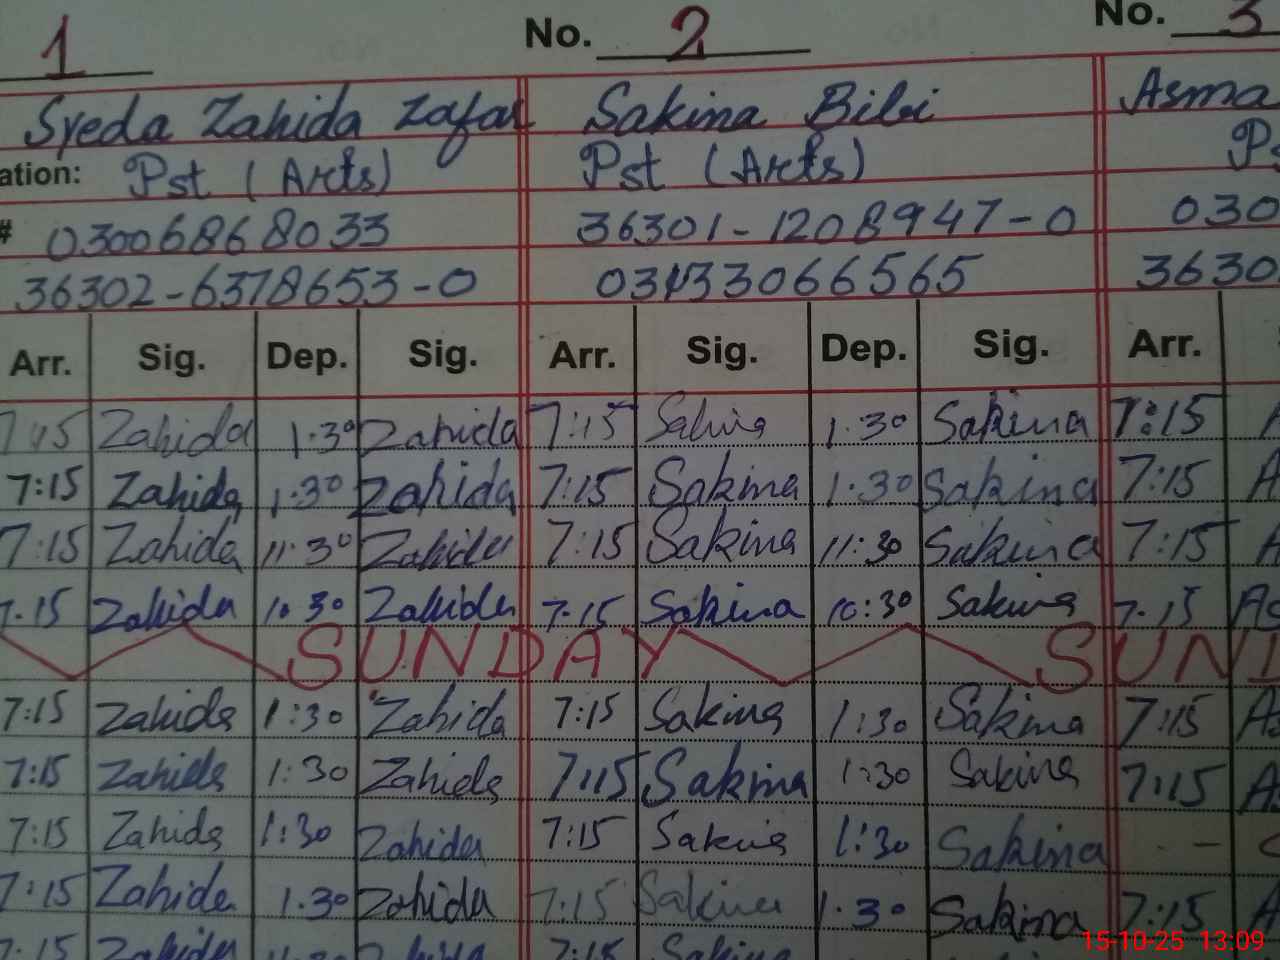 1 No. 2 No. 3
Syeda Zahida Zafar Sakina Bibi Asma
ation: Pst (Arts) Pst (Arts) Ps
# 03006868033 36301-1208947-0 030
36302-6378653-0 3630
Arr. Sig. Dep. Sig. Arr. Sig. Dep. Sig. Arr.
7:15 Zahida 1.30 Zahida 7:15 Sakina 1.30 Sakina 7:15 A
7:15 Zahida 1.30 Zahida 7:15 Sakina 1.30 Sakina 7:15 A
7:15 Zahida 11:30 Zahida 7:15 Sakina 11:30 Sakina 7:15 A
7.15 Zahida 10:30 Zahida 7.15 Sakina 10:30 Sakina 7.15 As
SUNDAY SUND
7:15 Zahida 1:30 Zahida 7:15 Sakina 1:30 Sakina 7:15 As
7:15 Zahida 1:30 Zahida 7:15 Sakina 1:30 Sakina 7:15 A
7:15 Zahida 1:30 Zahida 7:15 Sakina 1:30 Sakina
7:15 Zahida 1.30 Zahida 7:15 Sakina 1.30 Sakina 7:15 A
7:15 Zahida 7:15 Sakina
15-10-25 13:09